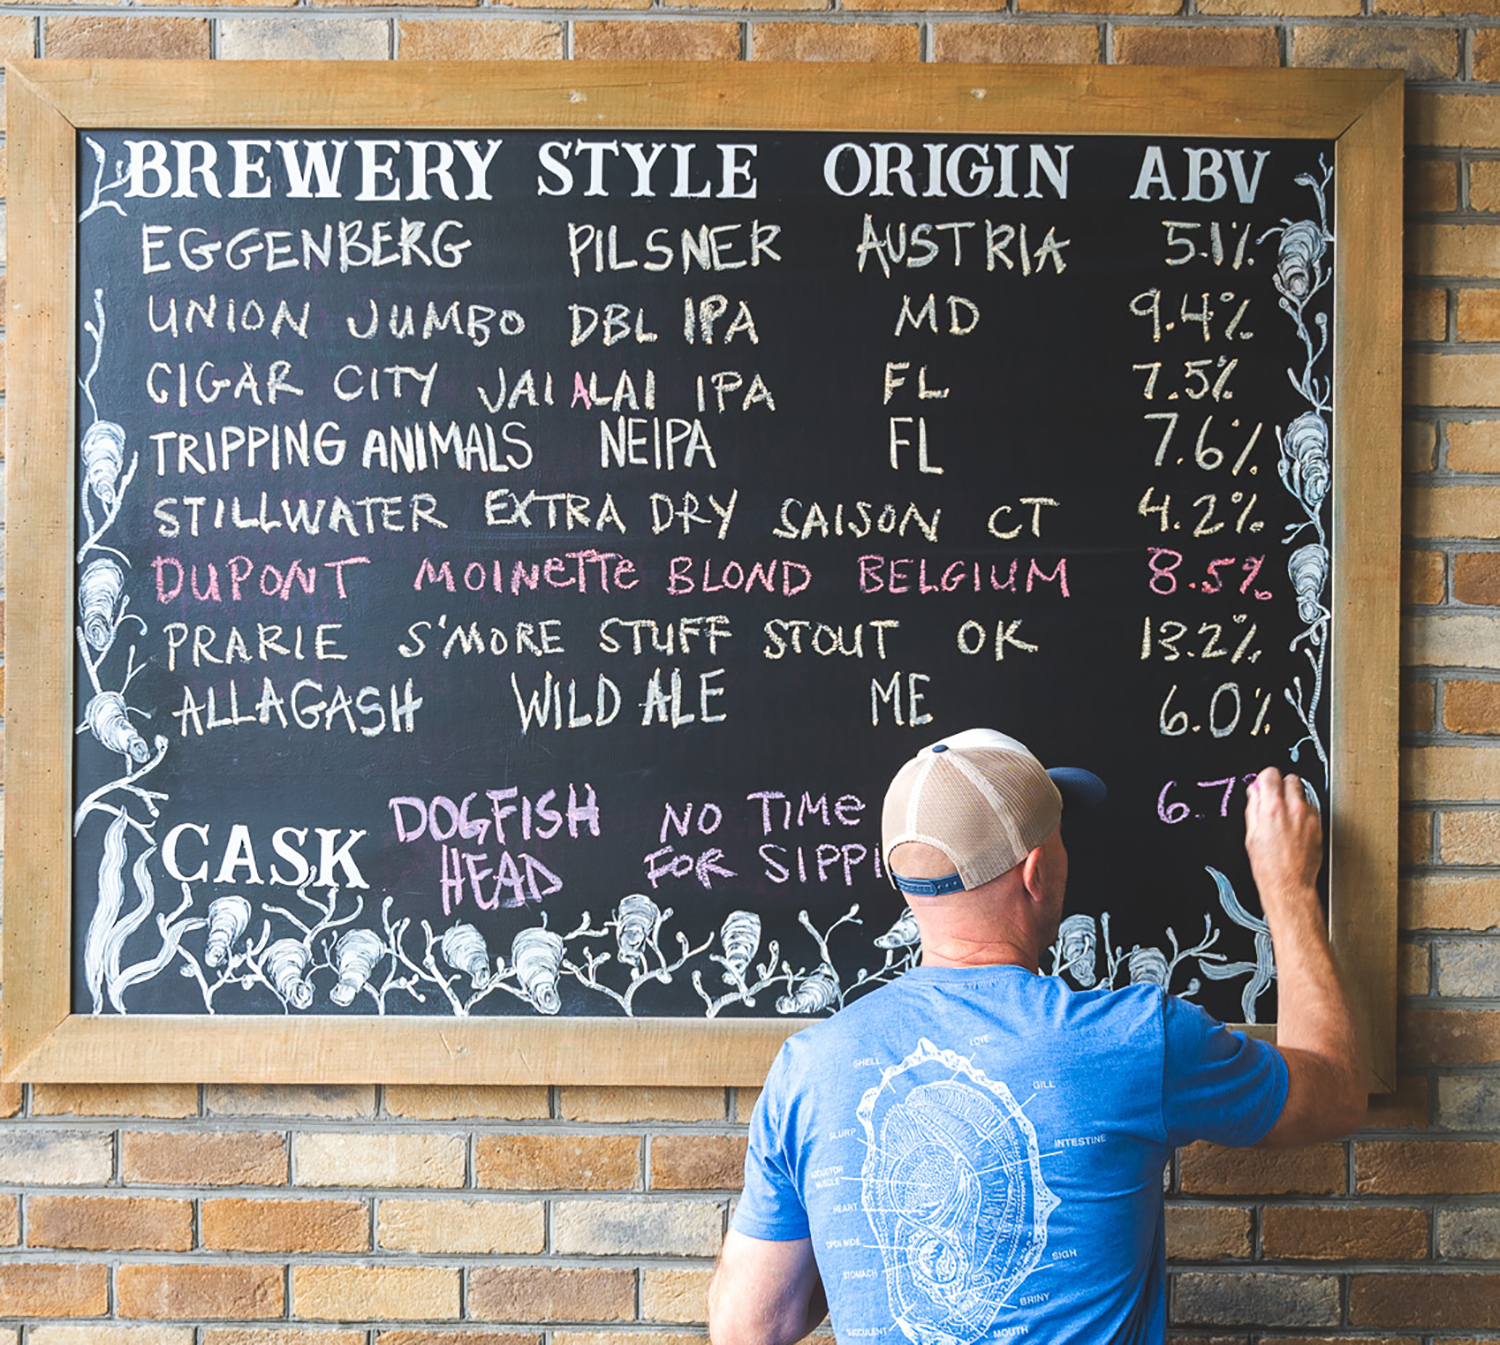 BREWERY STYLE ORIGIN ABV
EGGENBERG PILSNER AUSTRIA 5.1%
UNION JUMBO DBL IPA MD 9.4%
CIGAR CITY JAI ALAI IPA FL 7.5%
TRIPPING ANIMALS NEIPA FL 7.6%
STILLWATER EXTRA DRY SAISON CT 4.2%
DUPONT MOINETTE BLOND BELGIUM 8.5%
PRARIE S'MORE STUFF STOUT OK 13.2%
ALLAGASH WILD ALE ME 6.0%
CASK
DOGFISH NO TIME 6.7
HEAD FOR SIPPI
LOVE
SHELL
GILL
SLURP
INTESTINE
MUSCLE
HEART
OPEN WIDE
SIGH
STOMACH
BRINY
SUCCULENT
MOUTH